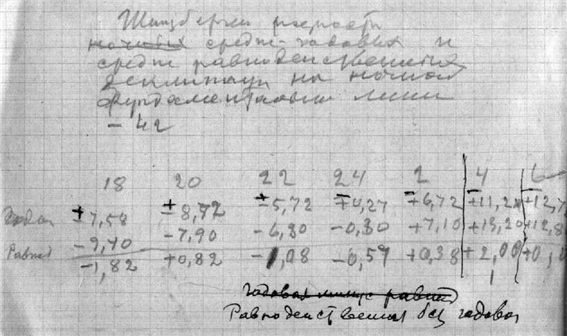 Шпицберген разности
ночных средне-годовых и
средне равноденственных
на ночной
фундаментальной линии
- 42
18 20 22 24 2 4
Годов ±7,58 ±8,72 ±5,72 ∓0,27 +6,72 +11,20
Равнод -9,40 -7,90 -6,80 -0,80 +7,10 +13,20
-1,82 +0,82 -1,08 -0,57 +0,38 +2,00
годовая минус равнод
Равноденственная без годовой